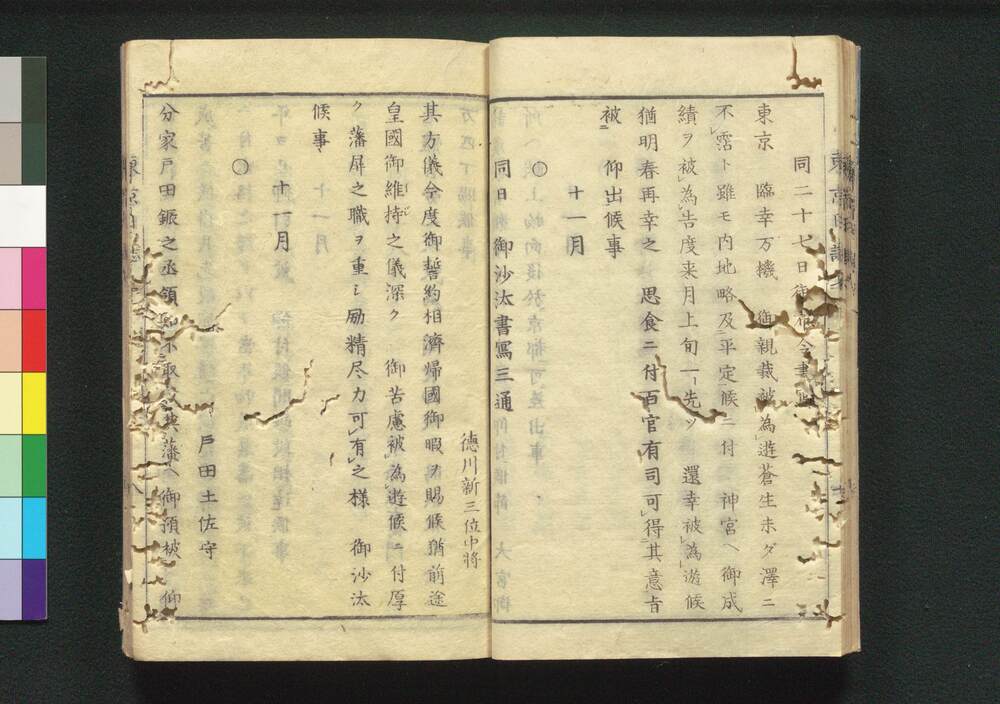 同二十七日御布令書寫
東京　臨幸万機　御親裁被爲遊蒼生未ダ澤ニ
不霑ト雖モ内地略及平定候ニ付　神宮ヘ御成
績ヲ被爲告度来月上旬一ト先ツ　還幸被爲遊候
猶明春再幸之　思食ニ付百官有司可得其意旨
被　仰出候事
十一月
○
同日　御沙汰書寫三通
徳川新三位中将
其方儀今度御誓約相濟帰國御暇ヲ賜候猶前途
皇國御維持之儀深ク　御苦慮被爲遊候ニ付厚
ク藩屏之職ヲ重シ励精尽力可有之様　御沙汰
候事
十一月
○
戸田土佐守
分家戸田鋠之丞領知不取
其藩ヘ御預被　仰